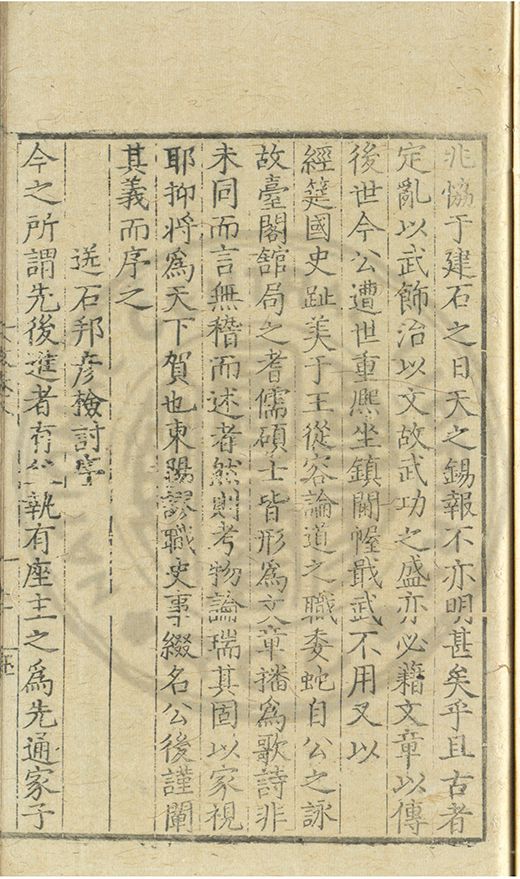 兆恊于建石之日天之錫報不亦明甚矣乎且古者
定亂以武飾治以文故武功之盛亦必藉文章以傳
後世今公遭世重熈坐鎮關幄戢武不用又以
經筵國史趾美于王從容論道之職委蛇自公之詠
故臺閣舘局之耆儒碩士皆形爲文章播爲歌詩非
未同而言無稽而述者然則考物論瑞其固以家視
耶抑將爲天下賀也東陽謬職史事綴名公後謹闡
其義而序之
送石邦彦檢討序
今之所謂先後進者有執有座主之爲先通家子